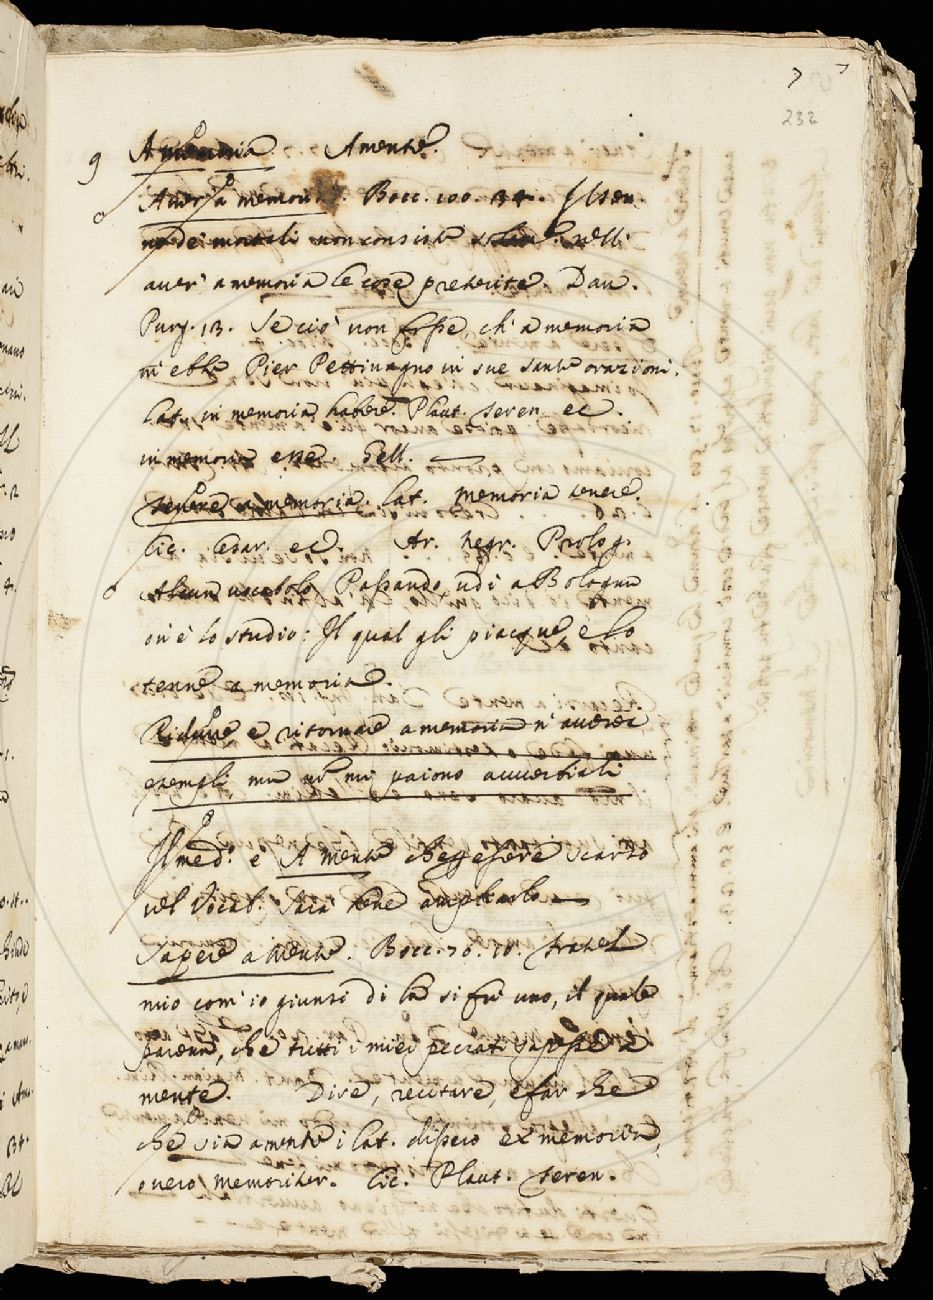 7 7
232
9 A memoria Amente.
Aver' a memoria. Bocc. 100. 34. Il sen-
no de' mortali non consiste solam.te nell'
aver' a memoria le cose preterite. Dan.
Purg. 13. Se ciò non fosse ch' a memoria
m' ebbe Pier Pettinagno in sue sante orazioni.
Lat. in memoria habere. Plaut. Teren. ec.
in memoria esse Gell. —
Tenere a memoria. Lat. memoria tenere.
Cic. Cesar. ec. Ar. Negr. Prolog.
Alcun vocabolo Passando, udì a Bologna
ov' è lo studio: Il qual gli piacque e lo
tenne a memoria.
Ridurre e ritornare a memoria n' averei
esempli ma mi paiono avverbiali
Il med.o è A mente che essere scarso
nel Vocab. Sarà bene ampliarlo —
Sapere a mente. Bocc. 70. 10. fratel
mio com' io giunsi di là si fu uno, il quale
pareva, che tutti i miei peccati sapesse a
mente. Dire, recitare, e far che
che sia a mente i Lat. dissero ex memoria,
overo memoriter. Cic. Plaut. Teren.